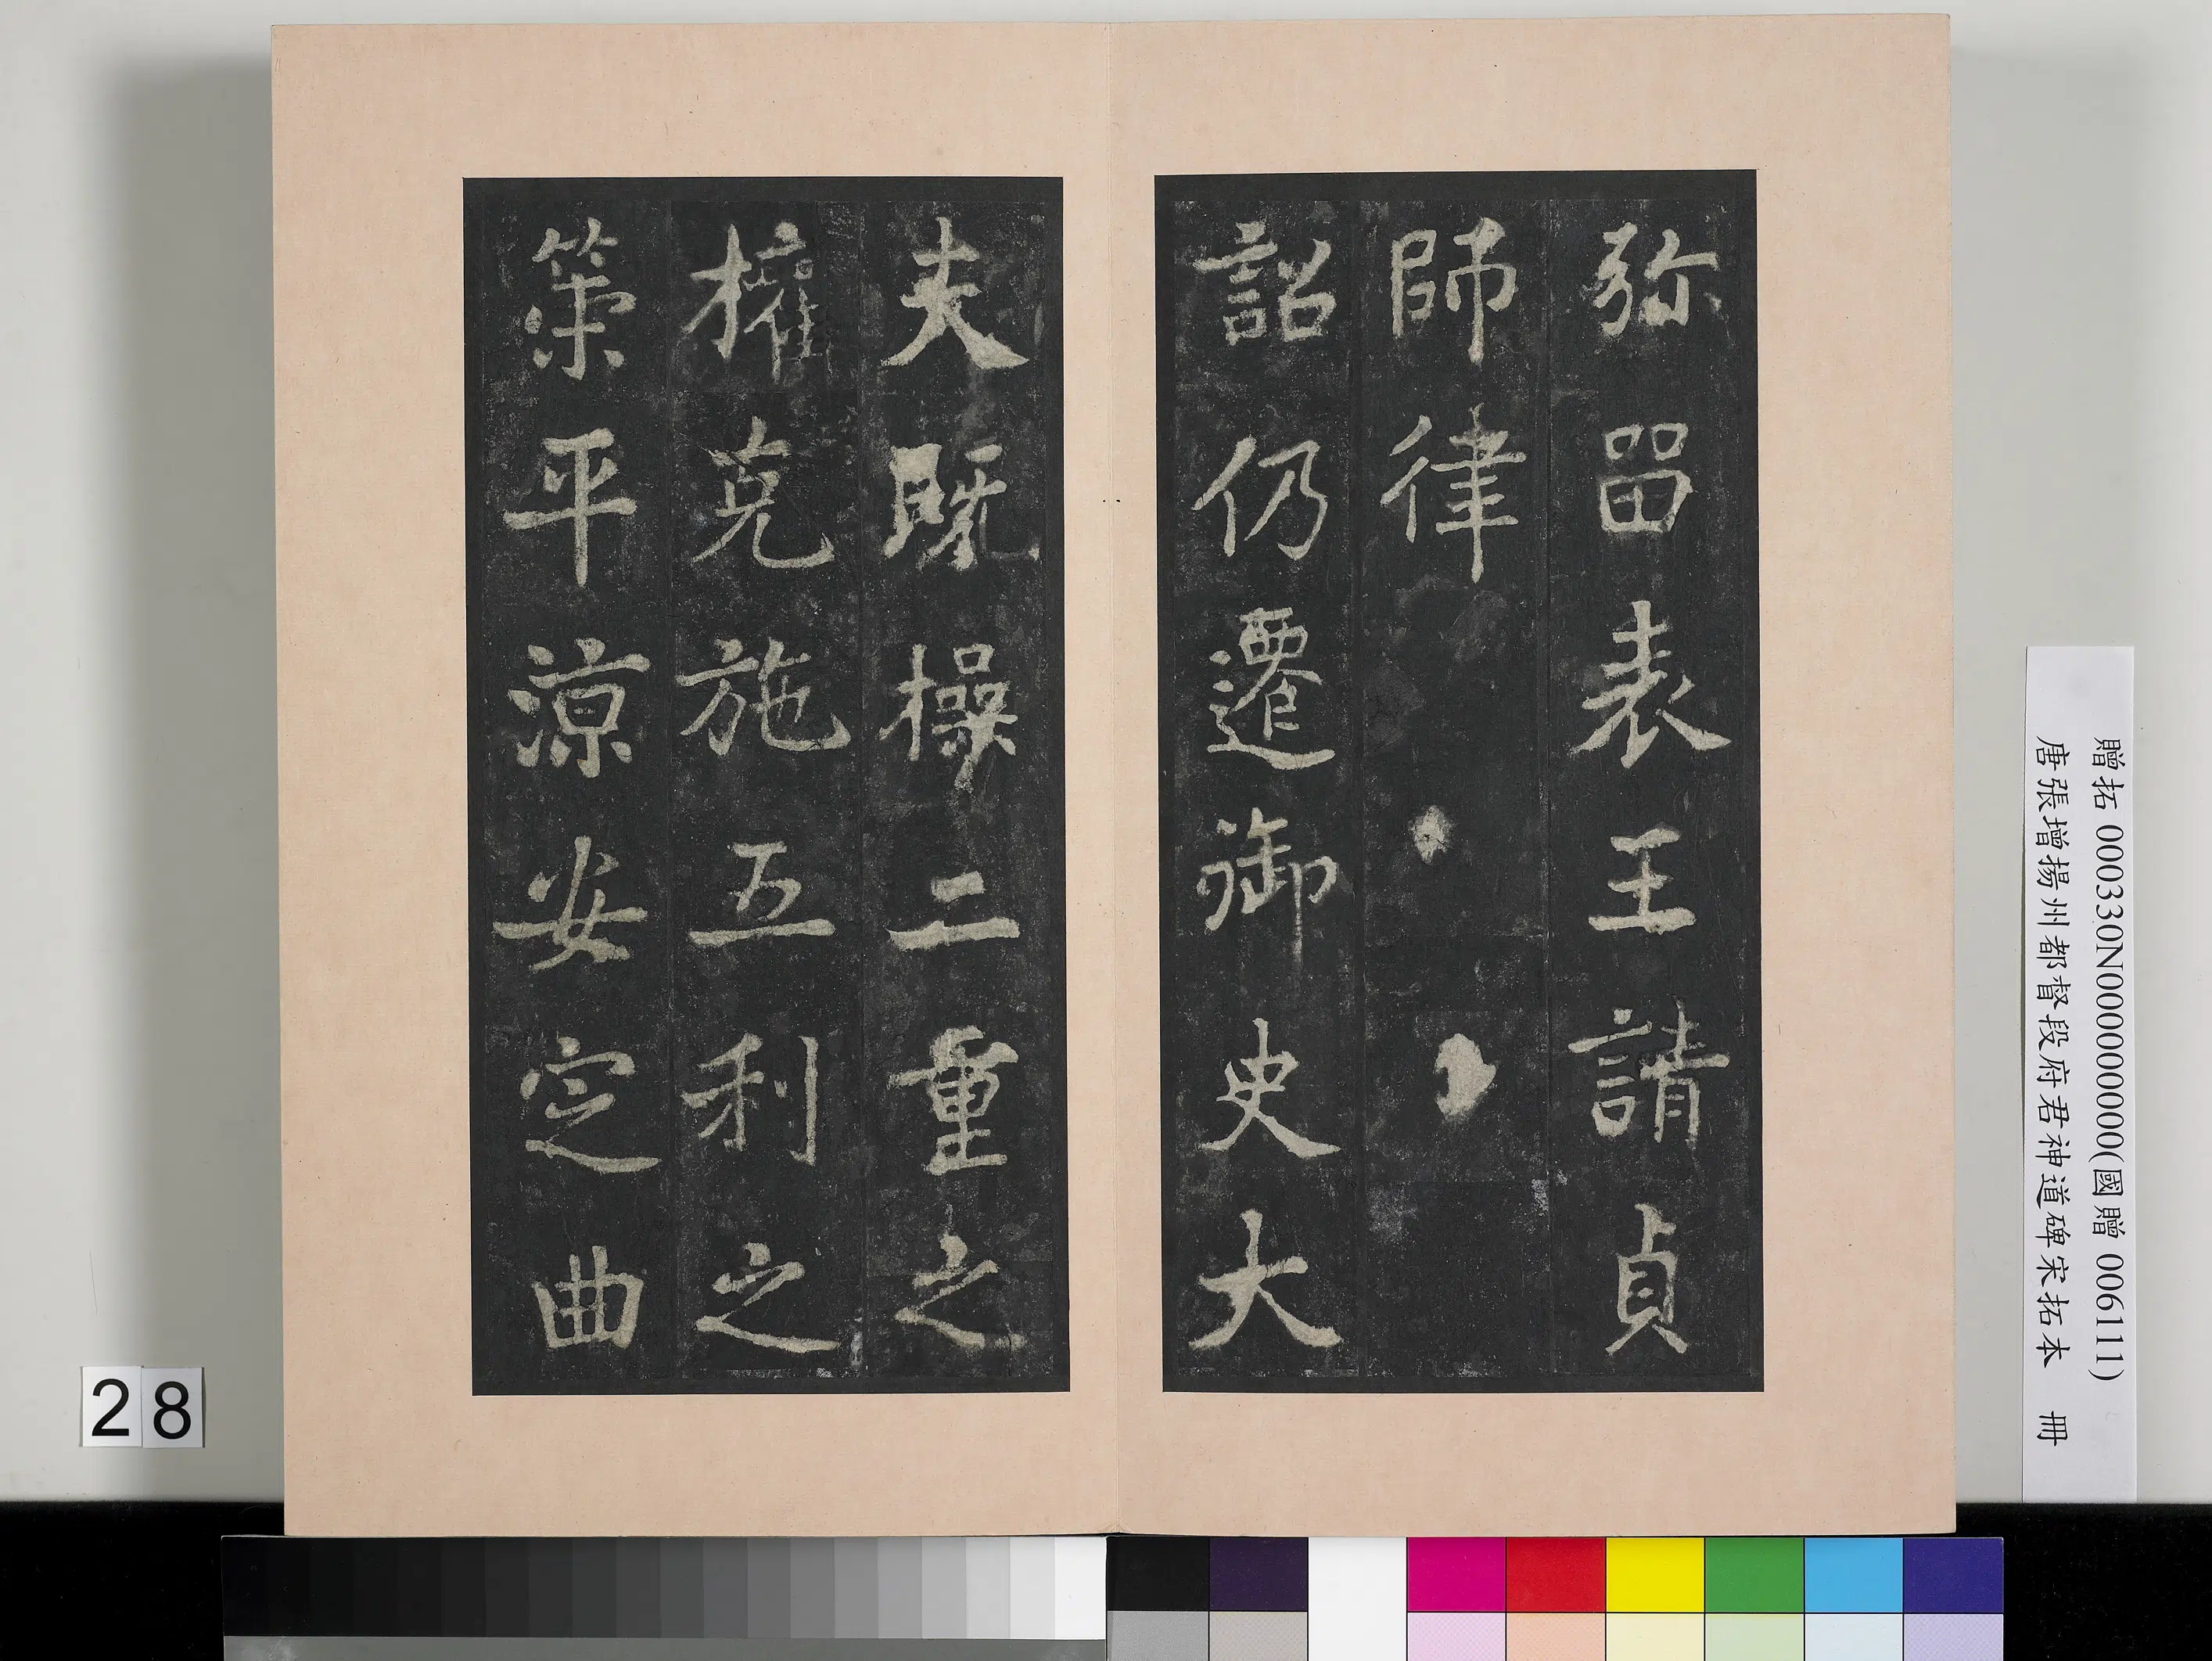 弥留表王請貞
師律
詔仍遷御史大
夫既操二重之
擁克施五利之
策平涼安定曲
贈拓 000330N000000000(國贈 006111)
唐張增揚州都督段府君神道碑宋拓本 冊
28